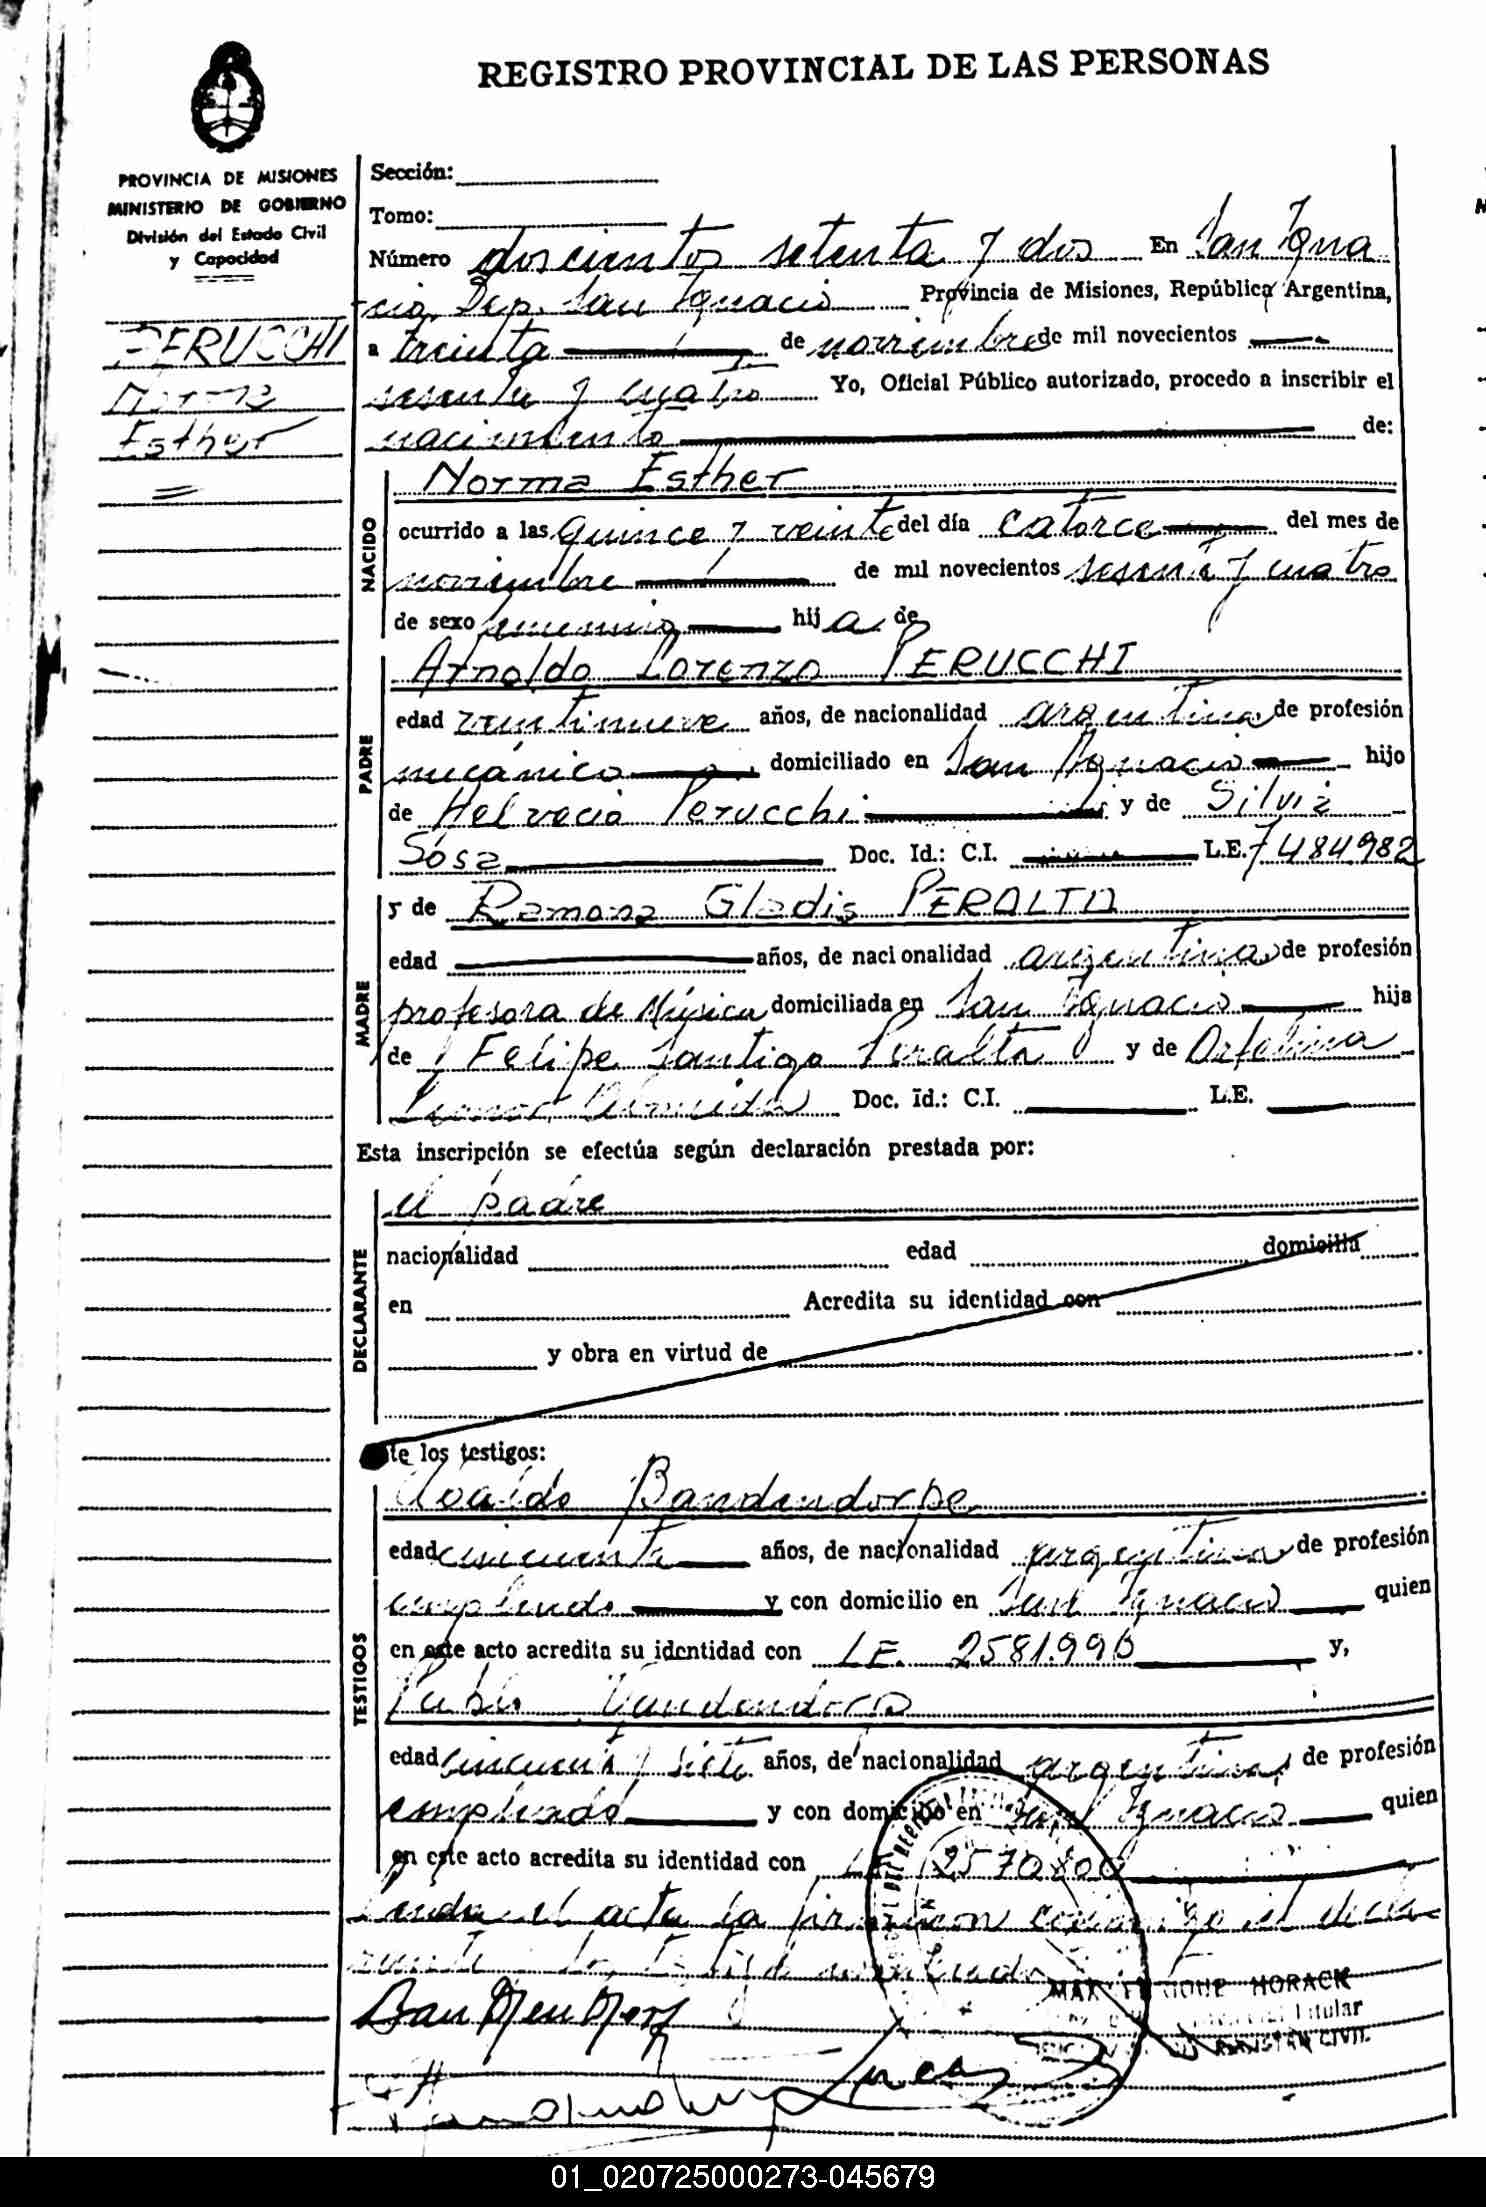 REGISTRO PROVINCIAL DE LAS PERSONAS
PROVINCIA DE MISIONES
MINISTERIO DE GOBIERNO
División del Estado Civil
y Capacidad
PERUCCHI
Norma
Esther
Sección:
Tomo:
Número doscientos setenta y dos En San Igna
cio, Dep. San Ignacio Provincia de Misiones, República Argentina,
a treinta de noviembre de mil novecientos
sesenta y cuatro Yo, Oficial Público autorizado, procedo a inscribir el
nacimiento de:
NACIDO
Norma Esther
ocurrido a las quince y veinte del día catorce del mes de
noviembre de mil novecientos sesenta y cuatro
de sexo femenino hija de
PADRE
Arnoldo Lorenzo PERUCCHI
edad veintinueve años, de nacionalidad argentina de profesión
mecánico domiciliado en San Ignacio hijo
de Helvecio Perucchi y de Silvia
Sosa Doc. Id.: C.I. L.E. 7484982
MADRE
y de Ramona Gladis PERALTA
edad años, de nacionalidad argentina de profesión
profesora de Música domiciliada en San Ignacio hija
de Felipe Santigo Peralta y de Orfelina
Leonor Almeida Doc. Id.: C.I. L.E.
Esta inscripción se efectúa según declaración prestada por:
DECLARANTE
el padre
nacionalidad edad domicilia
en Acredita su identidad con
y obra en virtud de
te los testigos:
TESTIGOS
Ubaldo Bandendorpe
edad cincuenta años, de nacionalidad argentina de profesión
empleado y con domicilio en San Ignacio quien
en este acto acredita su identidad con L.E. 2581.990 y,
Pablo Vandendorp
edad cincuenta y siete años, de nacionalidad argentina de profesión
empleado y con domicilio en San Ignacio quien
en este acto acredita su identidad con L.E. 2570.800
Leida el acta la firmaron conmigo el decla
rante y los testigos
HORACK
Titular
CIVIL
01_020725000273-045679